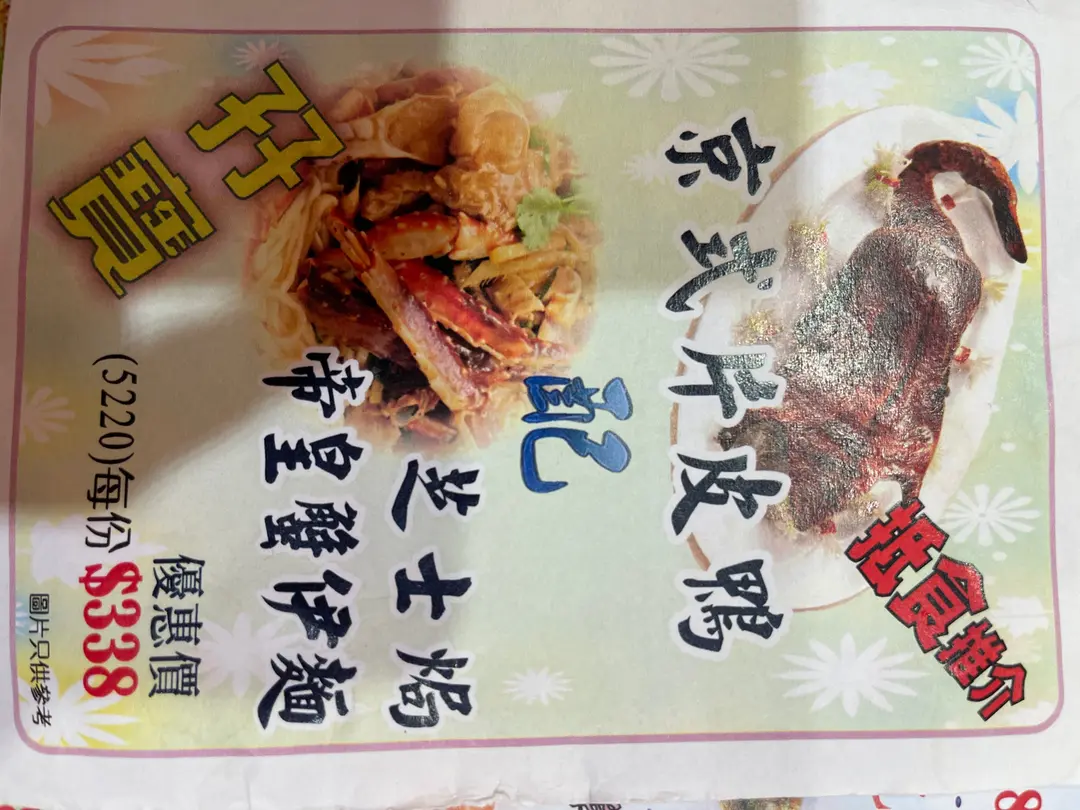 抵食推介
京式片皮鴨
配
芝士焗
帝皇蟹伊麵
孖寶
優惠價
(5220)每份$338
圖片只供參考